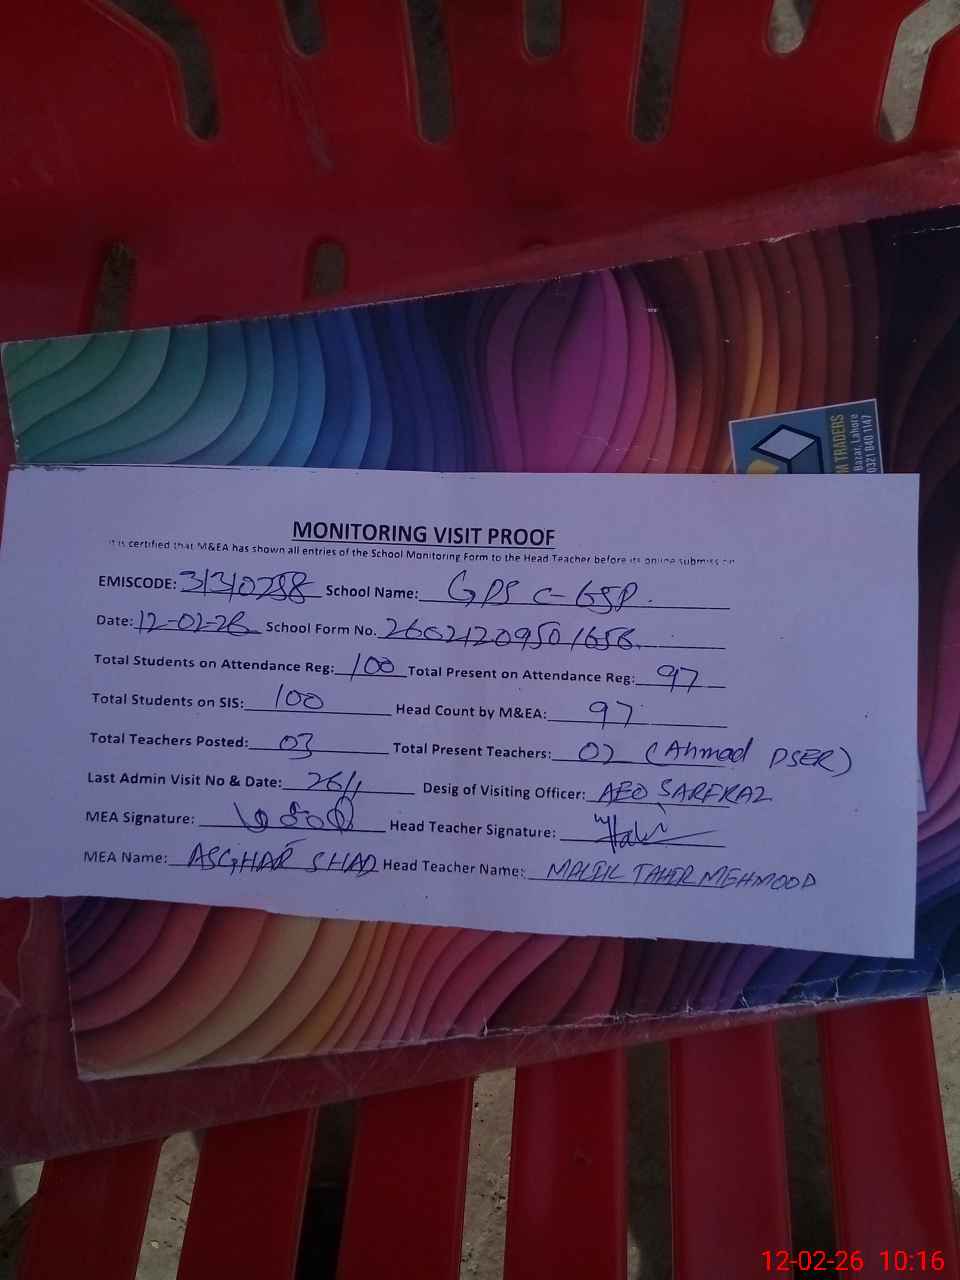 M TRADERS
Bazar, Lahore
0321 840 1147
MONITORING VISIT PROOF
It is certified that M&EA has shown all entries of the School Monitoring Form to the Head Teacher before its online submission
EMISCODE: 31310288 School Name: GPS C-65P.
Date: 12-02-26 School Form No. 26021209501656
Total Students on Attendance Reg: 100 Total Present on Attendance Reg: 97
Total Students on SIS: 100 Head Count by M&EA: 97
Total Teachers Posted: 03 Total Present Teachers: 02 (Ahmad DSER)
Last Admin Visit No & Date: 26/1 Desig of Visiting Officer: AEO SARFRAZ
MEA Signature: Head Teacher Signature:
MEA Name: ASGHAR SHAD Head Teacher Name: MALIK TAHIR MEHMOOD
12-02-26 10:16